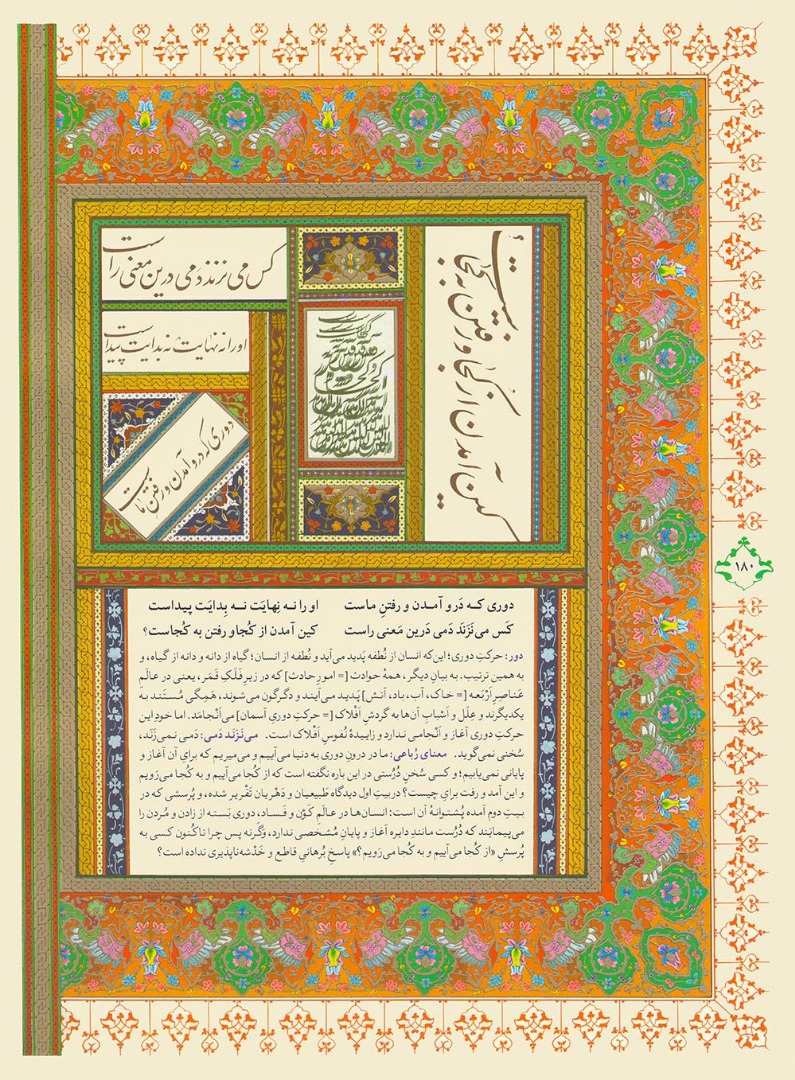 کس می نزند دمی درین معنی راست
او را نه نهایت نه بدایت پیداست
دوری که درو آمدن و رفتن ماست
کین آمدن از کجا و رفتن به کجاست
۱۸۰
دوری کـه دَر و آمـدن و رفتنِ ماست او را نـه نِهایَت نـه بِدایَت پیـداست
کَس می‌نَزَنَد دَمی دَرین مَعنی راست کین آمدن از کُجا و رفتن به کُجاست؟
دور: حرکتِ دوری؛ این‌که انسان از نُطفه پَدید می‌آید و نُطفه از انسان؛ گیاه از دانه و دانه از گیاه، و
به همین ترتیب. به بیانِ دیگر، همهٔ حوادث [= امورِ حادث] که در زیرِ فَلَکِ قَمَر، یعنی در عالَمِ
عَناصِرِ اَرْبَعه [= خاک، آب، باد، آتش] پَدید می‌آیند و دگرگون می‌شوند، هَمِگی مُستَند به
یکدیگرند و عِلَل و اَسْبابِ آن‌ها به گردشِ اَفْلاک [= حرکتِ دوریِ آسمان] می‌اَنْجامَد. اما خودِ این
حرکتِ دوری آغاز و اَنْجامی ندارد و زاییدهٔ نُفوسِ اَفْلاک است. می‌نَزَنَد دَمی: دَمی نمی‌زَنَد،
سُخَنی نمی‌گوید. معنای رُباعی: ما در درونِ دوری به دنیا می‌آییم و می‌میریم که برایِ آن آغاز و
پایانی نمی‌یابیم؛ و کسی سُخَنِ دُرُستی در این باره نگفته است که از کُجا می‌آییم و به کُجا می‌رَویم
و این آمد و رفت برایِ چیست؟ در بیتِ اول دیدگاه طَبیعیان و دَهْریان تَقْریر شده، و پُرسشی که در
بیتِ دوم آمده پُشتوانهٔ آن است: انسان‌ها در عالَمِ کَوْن و فَساد، دوری بَسته از زادن و مُردن را
می‌پیمایَنْد که دُرُست مانندِ دایره آغاز و پایانِ مُشَخَصی ندارد، وَگَرنه پس چرا تاکُنون کسی به
پُرسشِ «از کُجا می‌آییم و به کُجا می‌رَویم؟» پاسخِ بُرهانیِ قاطع و خَدْشه‌ناپذیری نداده است؟